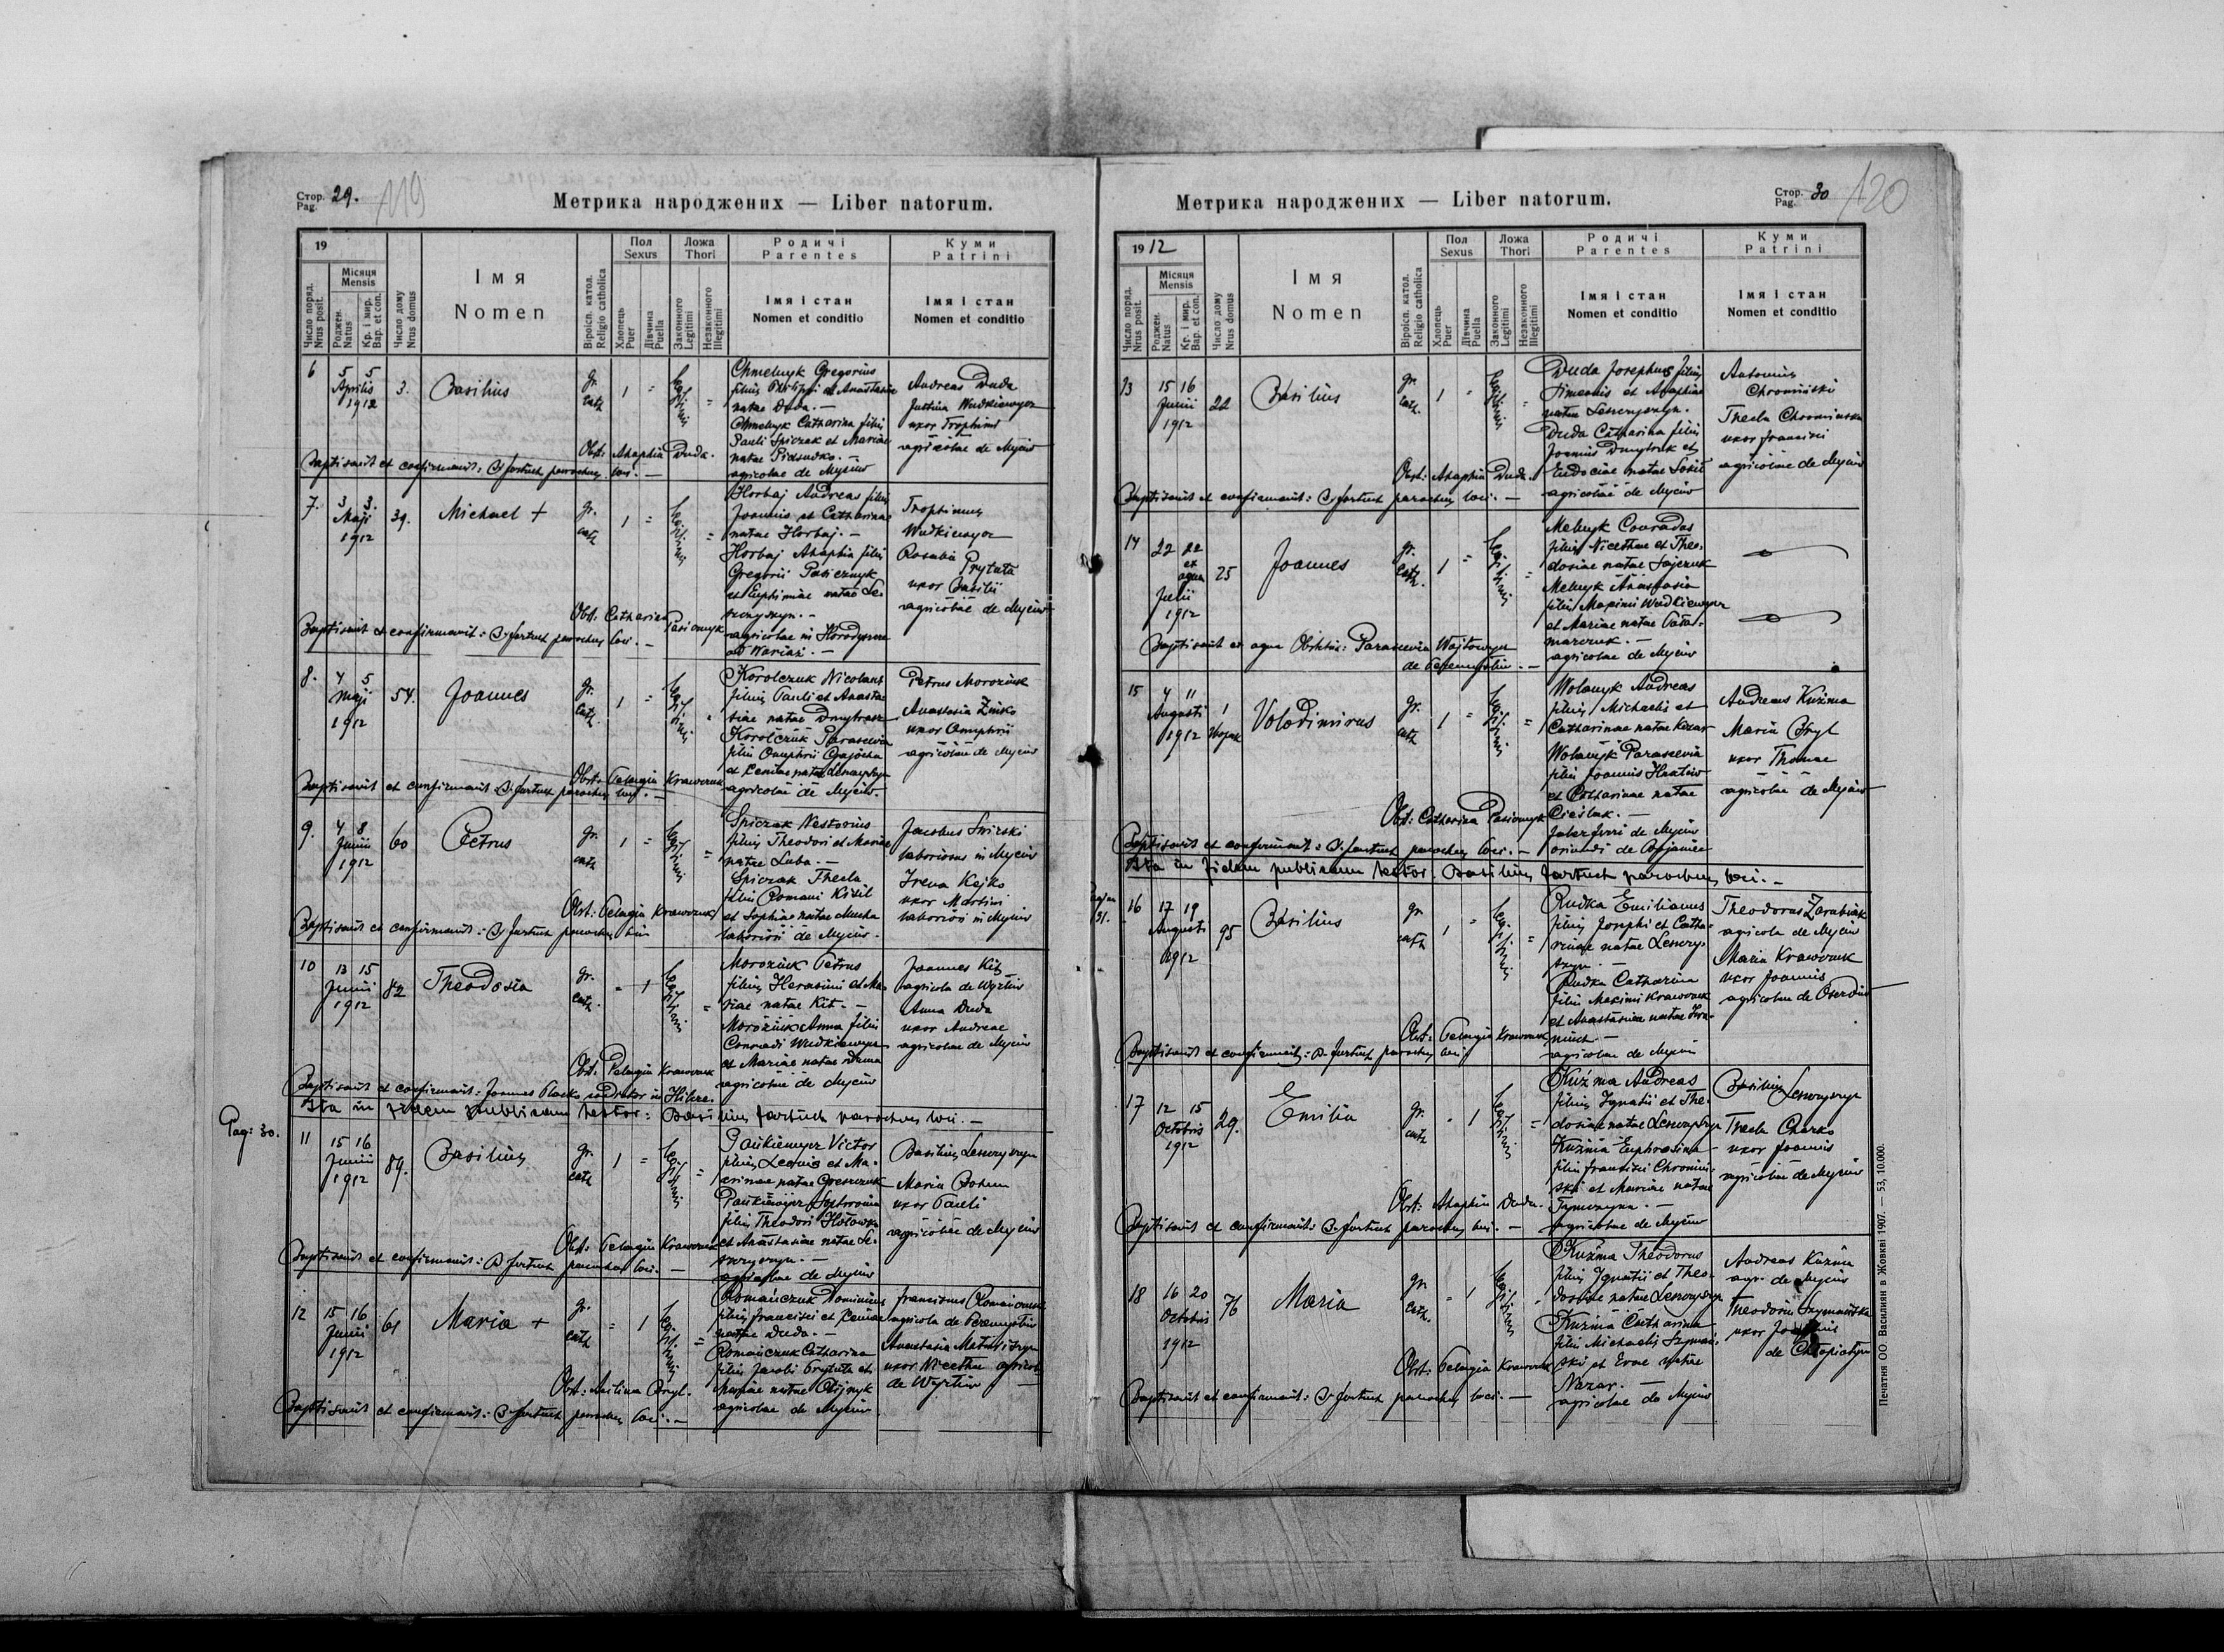 Стор. 29. 119
Pag.
Метрика народжених — Liber natorum.
19
Місяця
Mensis
Число поряд.
Nrus posit.
Роджен.
Natus
Кр. і мир.
Bap. et con.
Число дому
Nrus domus
Імя
Nomen
Віроісп. катол.
Religio catholica
Пол
Sexus
Хлопець
Puer
Дівчина
Puella
Ложа
Thori
Законного
Legitimi
Незаконного
Illegitimi
Родичі
Parentes
Імя і стан
Nomen et conditio
Куми
Patrini
Імя і стан
Nomen et conditio
6 5 5 Aprilis 1912 3. Basilius gr. cath 1 = legitimi =
Chmelnyk Gregorius
filius Philippi et Anastasiae
natae Duda. —
Chmelnyk Catharina filia
Pauli Spiczak et Mariae
natae
agricolae de Myców
Andreas Duda
Justina Wudkiewycz
uxor Trophimi
agricolae de Myców
Obst: Ahaphia Duda.
Baptisavit et confirmavit: B. Jortuch parochus loci. —
7. 3 3. Maji 1912 39. Michael + gr. cath 1 = legitimi =
Horbaj Andreas filius
Joannis et Catharinae
natae Horbaj. —
Horbaj Ahaphia filia
Gregorii Pasicznyk
et Euphimiae natae Le-
szczyszyn. —
agricolae in
ad Wariaż. —
Trophimus
Wudkiewycz
Rosalia Prytuła
uxor Basilii
agricolae de Myców
Obst: Catharina Pasicznyk
Baptisavit et confirmavit: B. Jortuch parochus loci. —
8. 4 5 Maji 1912 54. Joannes gr. cath. 1 = legitimi =
Korolczuk Nicolaus
filius Pauli et Anasta-
siae natae
Korolczuk Parascevia
filia Onuphrii
et natae Leszczyszyn
agricolae de Myców. —
Petrus Moroziuk
Anastasia
uxor Onuphrii
agricolae de Myców
Obst: Pelagia Krawczuk
Baptisavit et confirmavit B. Jortuch parochus loci. —
9. 7 8 Junii 1912 60 Petrus gr. cath 1 = legitimi =
Spiczak Nestorius
filius Theodori et Mariae
natae Luba. —
Spiczak Thecla
filia Romani
et Sophiae natae Mucha
laboriosi de Myców. —
Jacobus
laboriosus in Myców
Irena Kejko
uxor Martini
laboriosi in Myców
Obst: Pelagia Krawczuk
Baptisavit et confirmavit: B. Jortuch parochus loci
10 13 15 Junii 1912 82 Theodosia gr. cath. = 1 legitimi =
Moroziuk Petrus
filius Herasimi et Ma-
riae natae Kit. —
Moroziuk Anna filia
Conradi Wudkiewycz
et Mariae natae
agricolae de Myców
Joannes Kit
agricola de Wyżłów
Anna Duda
uxor Andreae
agricolae de Myców
Obst: Pelagia Krawczuk
Baptisavit et confirmavit: Joannes
Ita in fidem publicam testor: Basilius Jortuch parochus loci. —
Pag: 30.
11 15 16 Junii 1912 89. Basilius gr. cath 1 = legitimi =
Pańkiewycz Victor
filius et Ma-
rinae natae
Pańkiewycz
filia Theodori
et Anastasiae natae Le-
szczyszyn. —
agricolae de Myców
Basilius Leszczyszyn
Maria
uxor Pauli
agricolae de Myców
Obst: Pelagia Krawczuk
Baptisavit et confirmavit: B. Jortuch parochus loci. —
12 15 16 Junii 1912 61 Maria + gr. cath = 1 legitimi =
Romańczuk Dominicus
filius Francisci et
natae Duda. —
Romańczuk Catharina
filia Jacobi Prytuła et
Mariae natae Olijnyk
agricolae de Myców.
Franciscus Romańczuk
agricola de
Anastasia
uxor Nicethae agricol.
de Wyżłów
Obst: Bryl.
Baptisavit et confirmavit: B. Jortuch parochus loci. —
Метрика народжених — Liber natorum.
Стор. 30 120
Pag.
1912
Місяця
Mensis
Число поряд.
Nrus posit.
Роджен.
Natus
Кр. і мир.
Bap. et con.
Число дому
Nrus domus
Імя
Nomen
Віроісп. катол.
Religio catholica
Пол
Sexus
Хлопець
Puer
Дівчина
Puella
Ложа
Thori
Законного
Legitimi
Незаконного
Illegitimi
Родичі
Parentes
Імя і стан
Nomen et conditio
Куми
Patrini
Імя і стан
Nomen et conditio
13 15 16 Junii 1912 22 Basilius gr. cath. 1 = legitimi =
Duda Josephus filius
Simeonis et Ahaphiae
natae Leszczyszyn.
Duda Catharina filia
Joannis Dmytruk et
Eudociae natae
agricolae de Myców
Antonius
Chromiński
Thecla Chromińska
uxor Francisci
agricolae de Myców
Obst: Ahaphia Duda.
Baptisavit et confirmavit: B. Jortuch parochus loci. —
14 22 22 ex aqua Julii 1912 25 Joannes gr. cath. 1 = legitimi =
Melnyk Conradus
filius Nicethae et Theo-
dosiae natae
Melnyk Anastasia
filia Maximi Wudkiewycz
et Mariae natae
agricolae de Myców
Baptisavit ex aqua Obstetrix: Parascevia Wojtowycz
de
15 4 11 Augusti 1912 1 Volodimirus gr. cath 1 = legitimi =
Wolanyk Andreas
filius Michaelis et
Catharinae natae
Wolanyk Parascevia
filia Joannis
et Catharinae natae
Cieślak. —
de Myców
oriundi de
Andreas Kuźma
Maria Bryl
uxor Thomae
agricolae de Myców
Obst: Catharina Pasicznyk
Baptisavit et confirmavit: B. Jortuch parochus loci. —
Ita in fidem publicam testor. Basilius Jortuch parochus loci. —
31.
16 17 19 Augusti 1912 95 Basilius gr. cath 1 = legitimi =
Rudka Emilianus
filius Josephi et Catha-
rinae natae Leszczy-
szyn. —
Rudka Catharina
filia Maximi Krawczuk
et Anastasiae natae
agricolae de Myców
Theodorus
agricola de Myców
Maria Krawczuk
uxor Joannis
agricolae de
Obst: Pelagia Krawczuk
Baptisavit et confirmavit: B. Jortuch parochus loci
17 12 15 Octobris 1912 29. Emilia gr. cath = 1 legitimi =
Kuźma Andreas
filius Ignatii et The-
dosiae natae Leszczyszyn
Kuźma Euphrosina
filia Francisci Chromiń-
ski et Mariae natae
agricolae de Myców
Basilius Leszczyszyn
Thecla
uxor Joannis
agricolae de Myców
Obst: Ahaphia Duda.
Baptisavit et confirmavit: B. Jortuch parochus loci. —
18 16 20 Octobris 1912 76 Maria gr. cath. = 1 legitimi
Kuźma Theodorus
filius Ignatii et Theo-
dosiae natae Leszczyszyn
Kuźma Catharina
filia Michaelis Szymań-
ski et Evae natae
Nazar. —
agricolae de Myców
Andreas Kuźma
agr. de Myców
Theodosia Szymańska
uxor
de
Obst: Pelagia Krawczuk
Baptisavit et confirmavit: B. Jortuch parochus loci. —
Печатня ОО. Василиян в Жовкві 1907. — 53, 10.000.